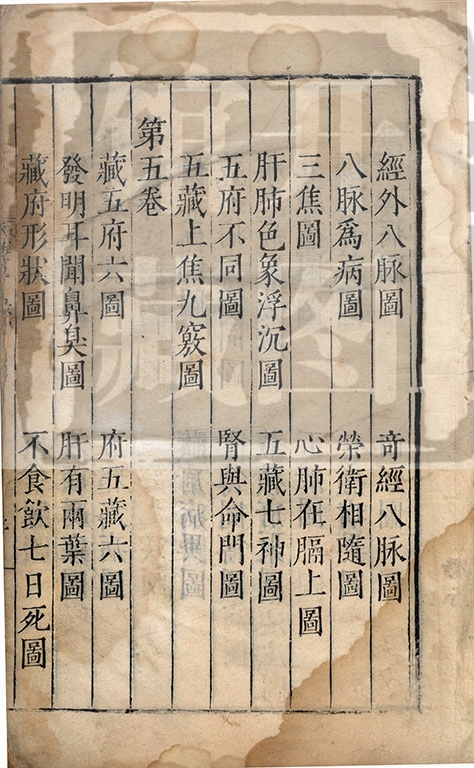 經外八脉圖 奇經八脉圖
八脉爲病圖 榮衛相隨圖
三焦圖 心肺在膈上圖
肝肺色象浮沉圖 五藏七神圖
五府不同圖 腎與命門圖
五藏上焦九竅圖
第五卷
藏五府六圖 府五藏六圖
發明耳聞鼻臭圖 肝有兩葉圖
藏府形狀圖 不食飲七日死圖